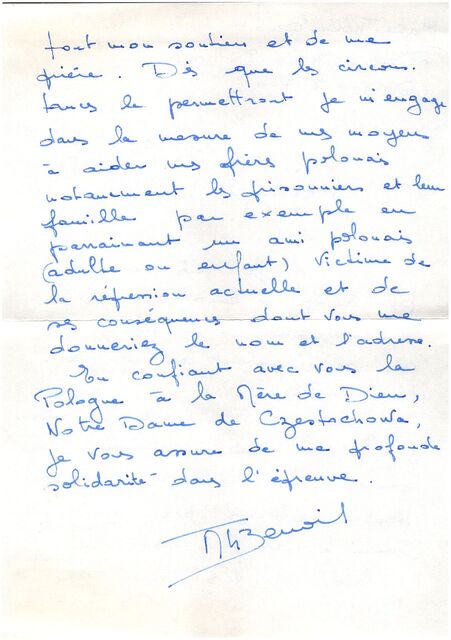 tout mon soutien et de ma
prière. Dès que les circons.
tances le permettront je m'engage
dans la mesure de mes moyens
à aider mes frères polonais
notamment les prisonniers et leur
famille par exemple en
parrainant un ami polonais
(adulte ou enfant) victime de
la répression actuelle et de
ses conséquences dont vous me
donneriez le nom et l'adresse.
En confiant avec vous la
Pologne à la Mère de Dieu,
Notre Dame de Czestochowa,
je vous assure de ma profonde
solidarité dans l'épreuve.
Benoit